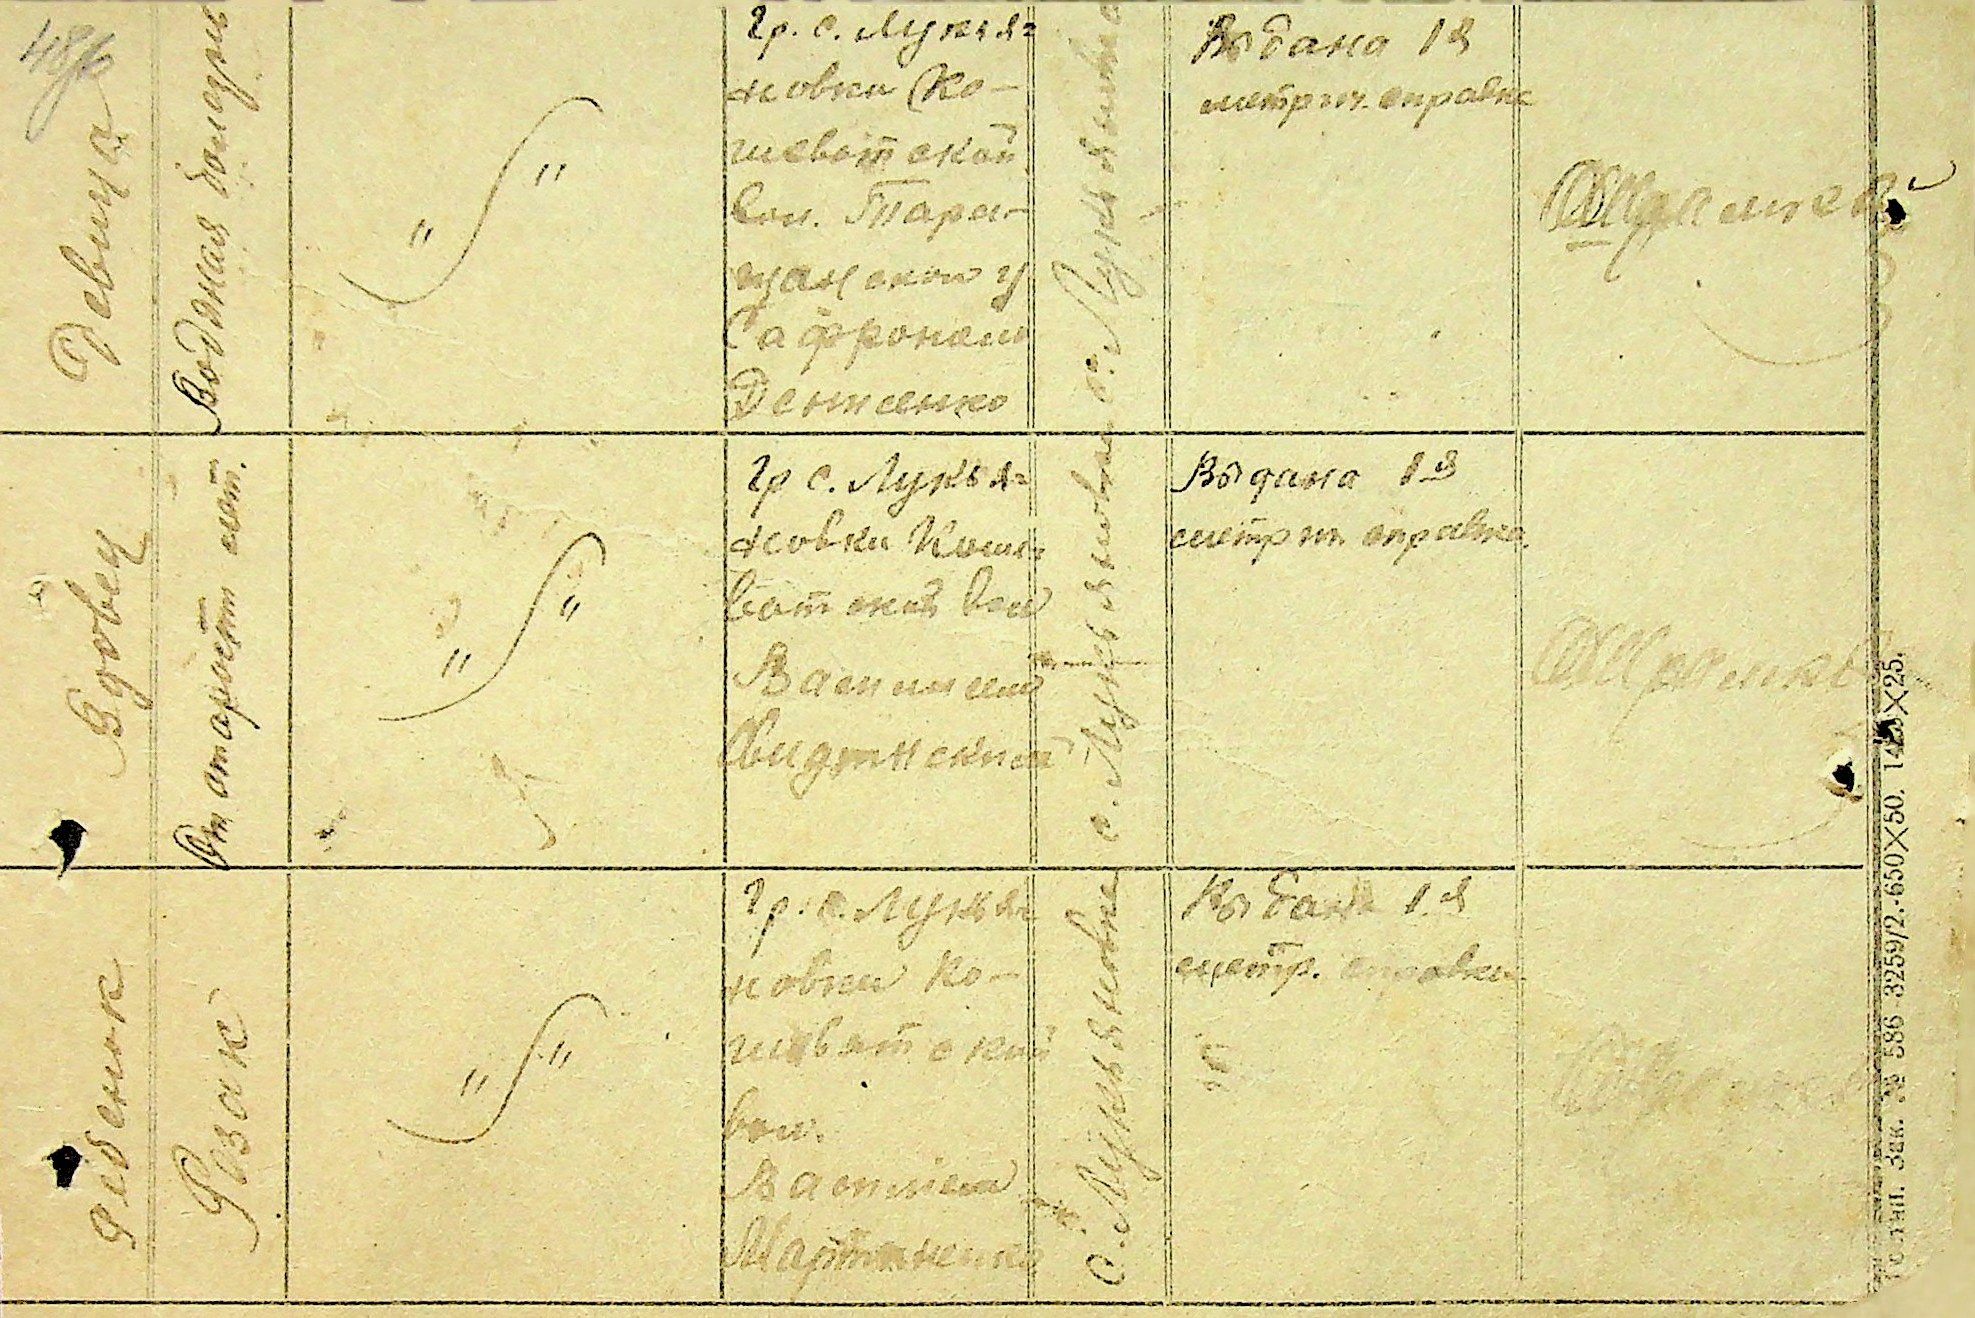 Девица
Водяная болезнь
„ “
Гр. с. Лукья=
новки Ко-
шеватской
вол. Тара-
щанской у
Сафроном
Денисенко
с. Лукьяновка
Выдана 1я
метрич. справка
Вдовец
От старости лет.
„ “
Гр с. Лукья=
новки Коше=
ватской вол
Василием
с. Лукьяновка
Выдана 1-я
метрич справка.
Ребенок
Рзак
„ “
Гр. с. Лукья=
новки Ко-
шеватской
вол.
Василием
Мартыненко
с. Лукьяновка
Выдана 1я
метр. справка
Гостип. Зак. № 586-3259/2.-650×50.